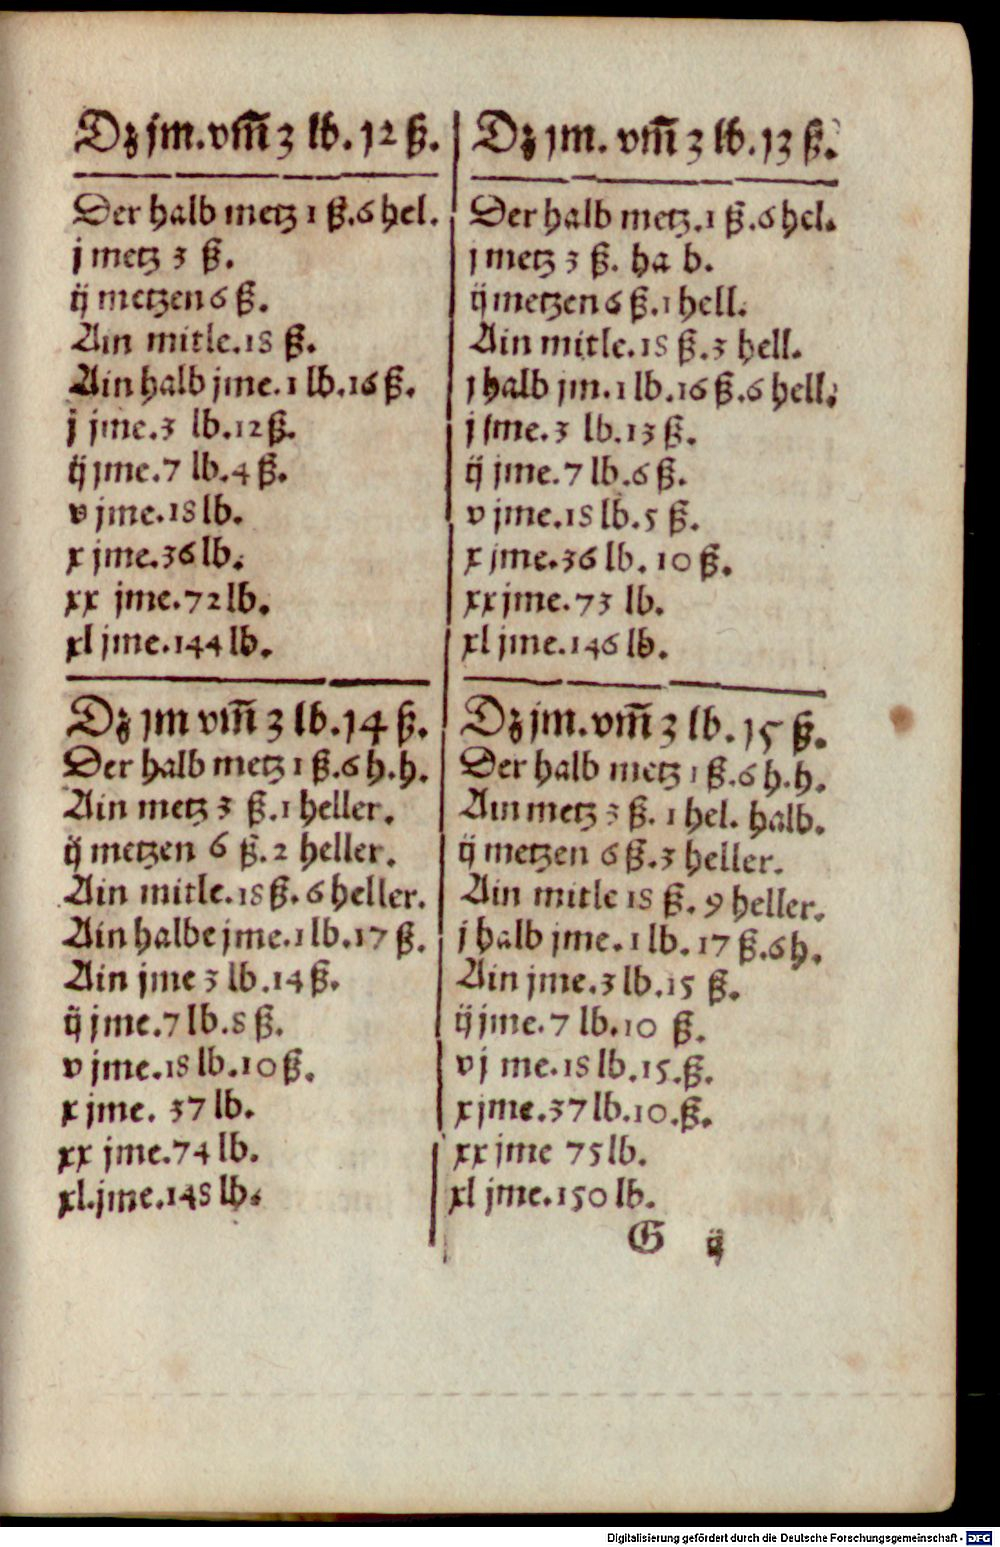 Dʒ jm. vm̄ 3 lb. 12 ß.
Der halb metz 1 ß. 6 hel.
j metz 3 ß.
ij metzen 6 ß.
Ain mitle. 18 ß.
Ain halb jme. 1 lb. 16 ß.
j jme. 3 lb. 12 ß.
ij jme. 7 lb. 4 ß.
v jme. 18 lb.
x jme. 36 lb.
xx jme. 72 lb.
xl jme. 144 lb.
Dʒ jm vm̄ 3 lb. 14 ß.
Der halb metz 1 ß. 6 h. h.
Ain metz 3 ß. 1 heller.
ij metzen 6 ß. 2 heller.
Ain mitle. 18 ß. 6 heller.
Ain halbe jme. 1 lb. 17 ß.
Ain jme 3 lb. 14 ß.
ij jme. 7 lb. 8 ß.
v jme. 18 lb. 10 ß.
x jme. 37 lb.
xx jme. 74 lb.
xl. jme. 148 lb.
Dʒ jm. vm̄ 3 lb. 13 ß.
Der halb metz. 1 ß. 6 hel.
j metz 3 ß. ha b.
ij metzen 6 ß. 1 hell.
Ain mitle. 18 ß. 3 hell.
j halb jm. 1 lb. 16 ß. 6 hell.
j jme. 3 lb. 13 ß.
ij jme. 7 lb. 6 ß.
v jme. 18 lb. 5 ß.
x jme. 36 lb. 10 ß.
xx jme. 73 lb.
xl jme. 146 lb.
Dʒ jm. vm̄ 3 lb. 15 ß.
Der halb metz 1 ß. 6 h. h.
Ain metz 3 ß. 1 hel. halb.
ij metzen 6 ß. 3 heller.
Ain mitle 18 ß. 9 heller.
j halb jme. 1 lb. 17 ß. 6 h.
Ain jme. 3 lb. 15 ß.
ij jme. 7 lb. 10 ß.
v j me. 18 lb. 15. ß.
x jme. 37 lb. 10. ß.
xx jme 75 lb.
xl jme. 150 lb.
G ij
Digitalisierung gefördert durch die Deutsche Forschungsgemeinschaft - DFG